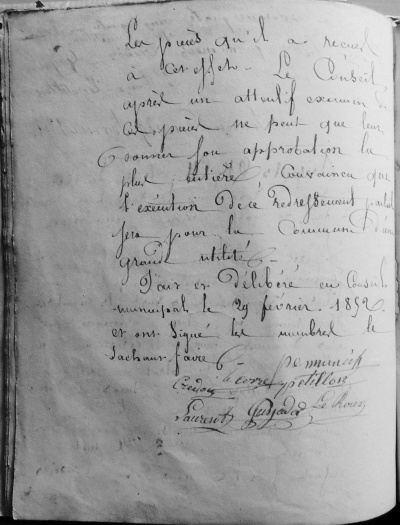 Les pièces qu'il a recueil
à cet effet. Le Conseil
après un attentif examen de
ces pièces ne peut que leur
donner son approbation la
plus entière et Convaincu que
l'exécution de ce redressement partiel
sera pour la Commune d'une
grande utilité.
Fait et Délibéré en Conseil
municipal le 29 février 1852.
et ont signé les membres le
sachant faire
le corre petillon
Laurent Guyader Le Roux